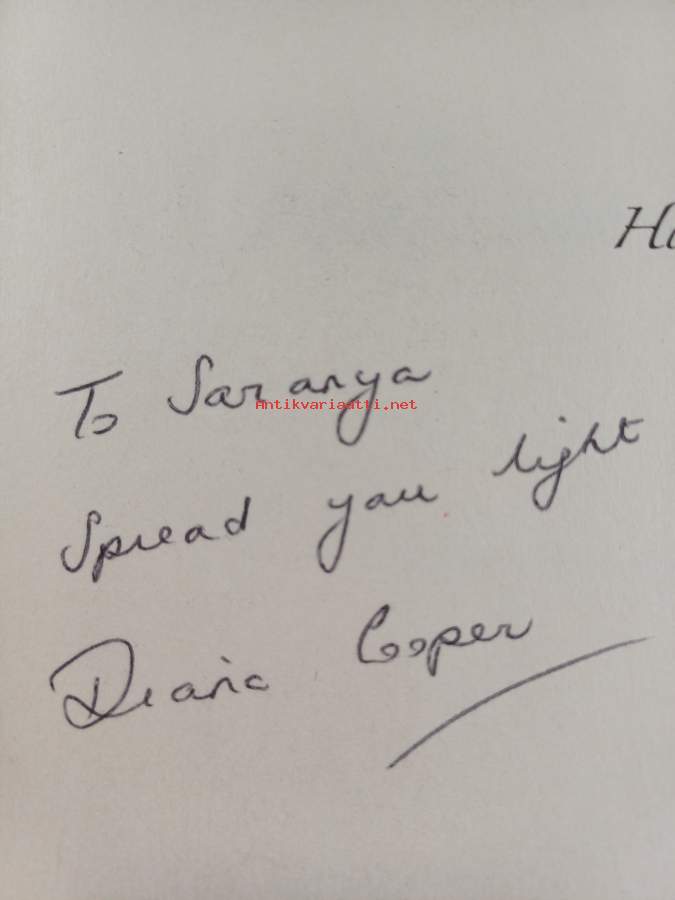 To Saranya
Antikvariaatti.net
Spread your light
Diana Cooper